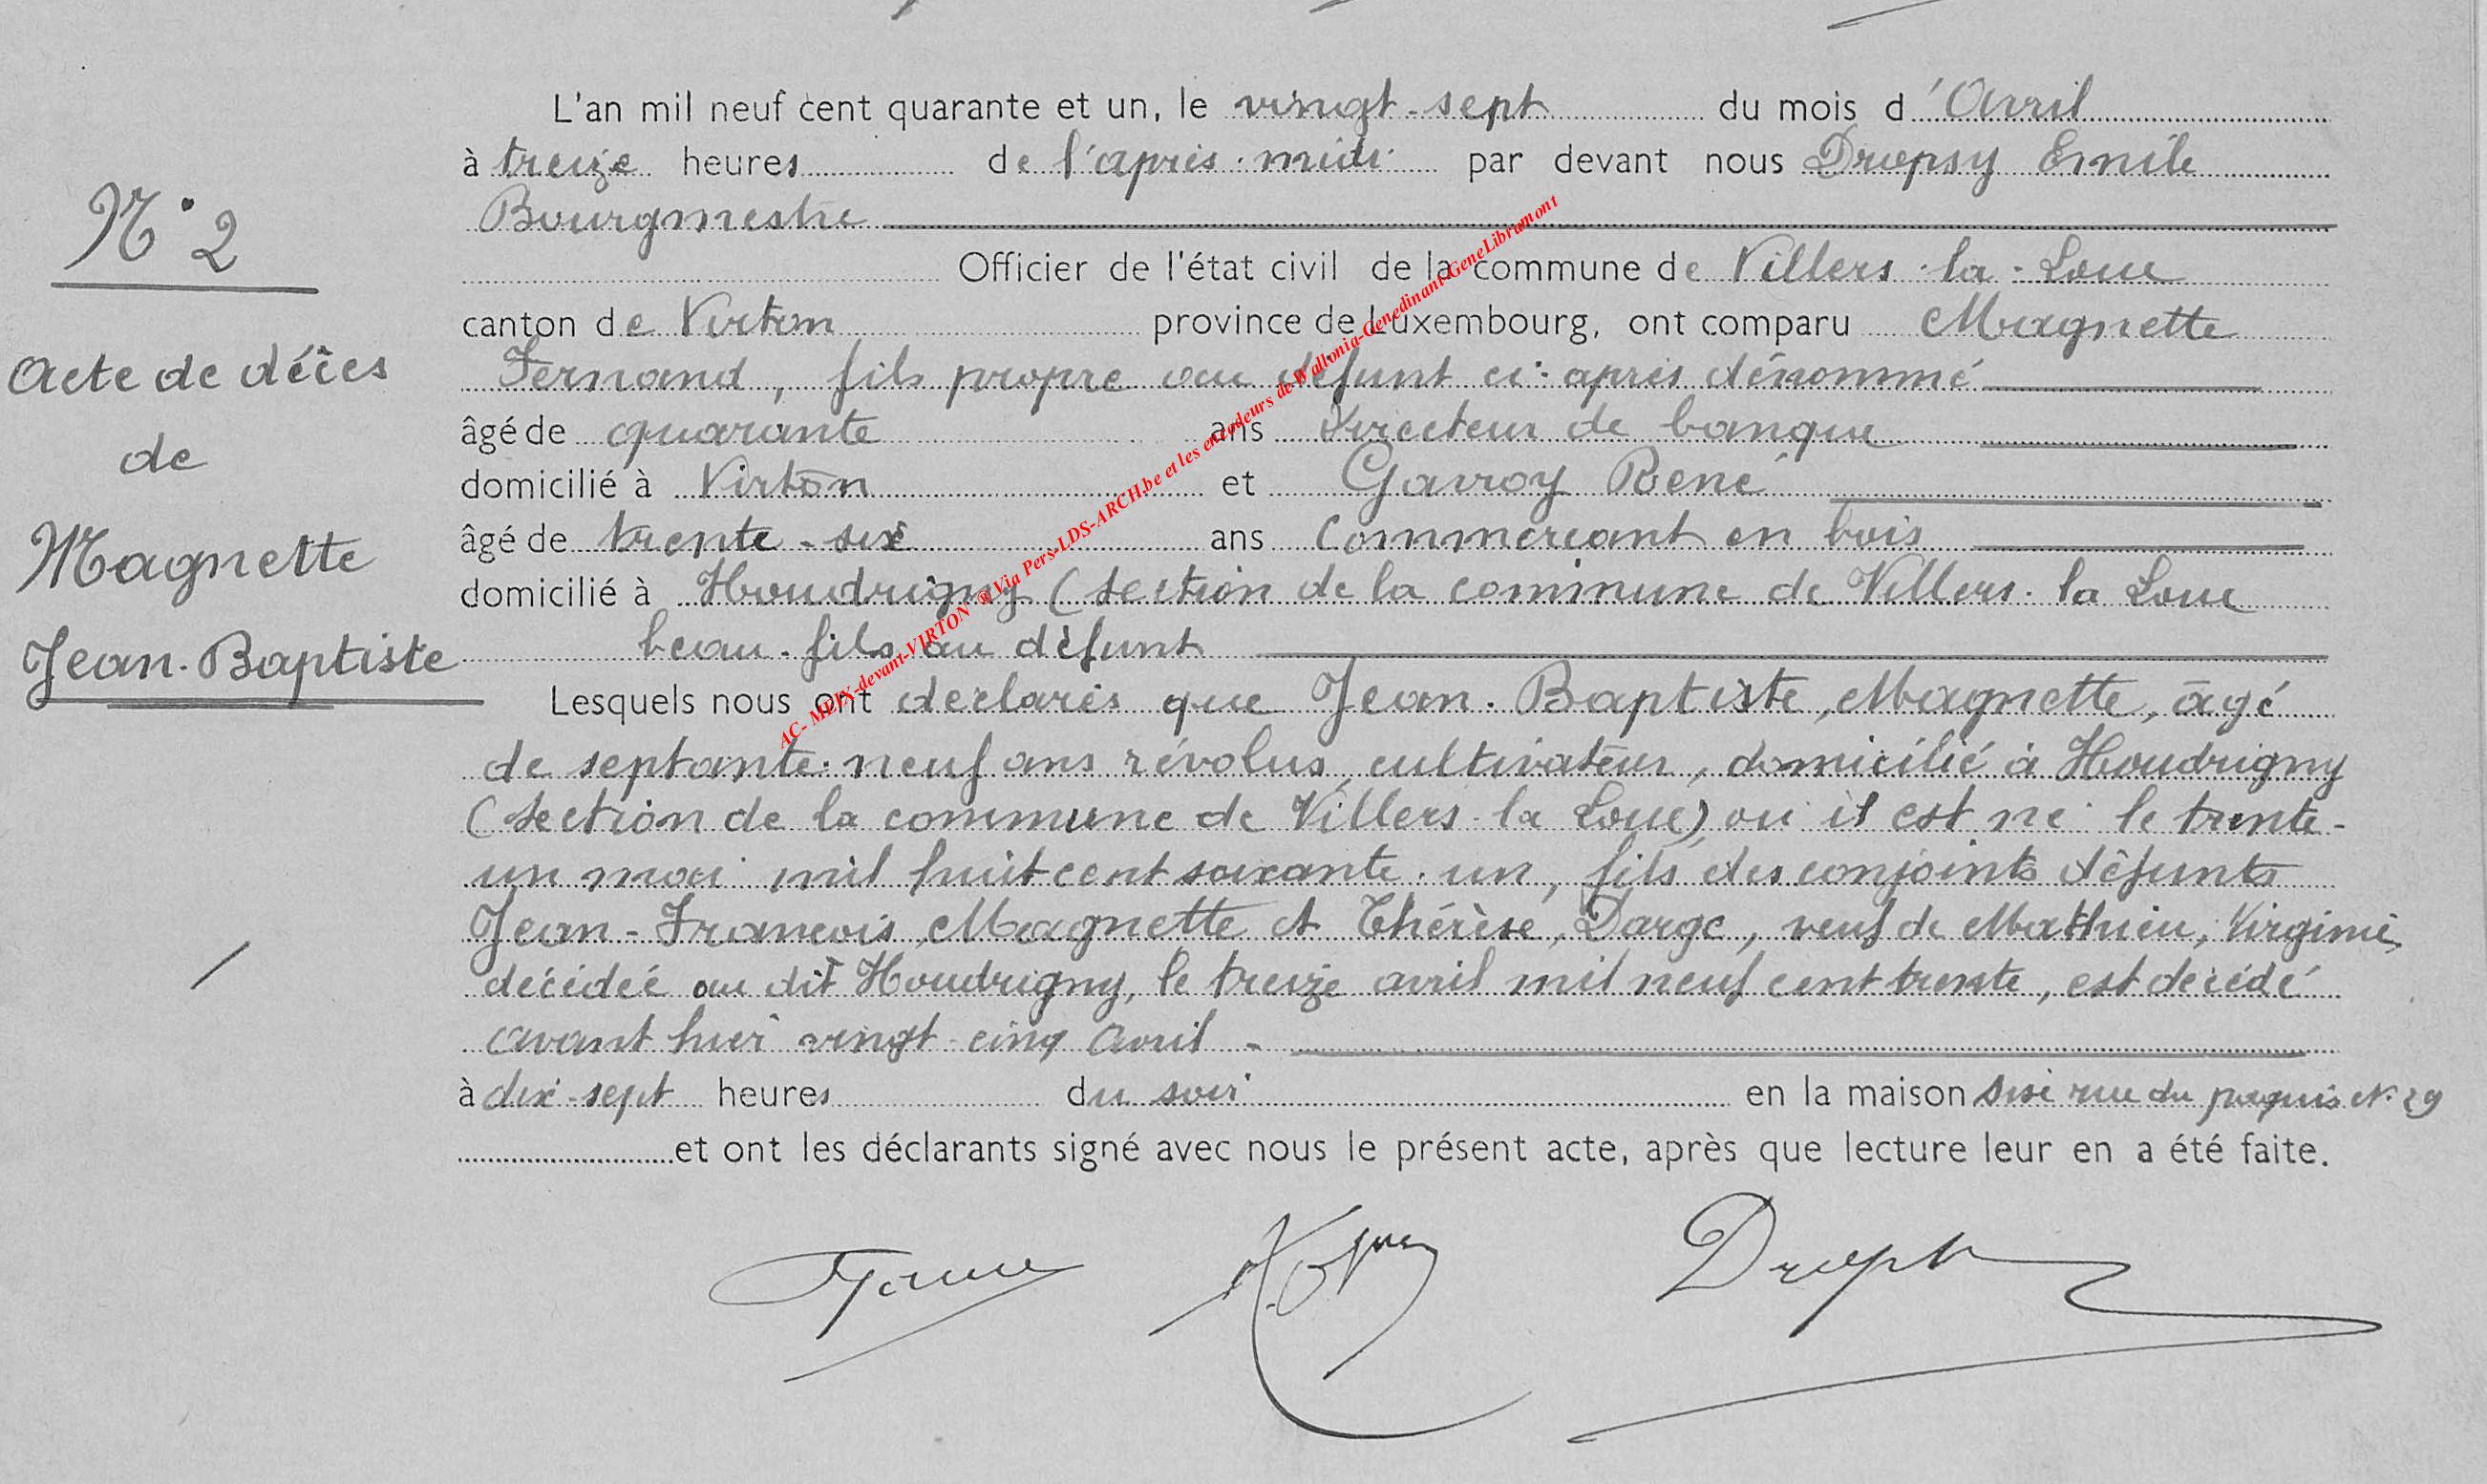 L'an mil neuf cent quarante et un, le vingt-sept du mois d'Avril
à treize heures de l'après-midi par devant nous Dropsy Emile
Bourgmestre
Officier de l'état civil de la commune de Villers-la-Loue
canton de Virton province de Luxembourg, ont comparu Magnette
Fernand, fils propre au défunt ci-après dénommé
âgé de quarante ans Directeur de banque
domicilié à Virton et Gavroy René
âgé de trente-six ans Commercant en bois
domicilié à Houdrigny (section de la commune de Villers-la Loue
beau-fils au défunt
N° 2
Acte de décès
de
Magnette
Jean-Baptiste
Lesquels nous ont declarés que Jean-Baptiste, Magnette, âgé
de septante-neuf ans révolus, cultivateur, domicilié à Houdrigny
(section de la commune de Villers-la Loue) où il est né le trente-
un mai mil huit cent soixante-un, fils des conjoints défunts
Jean-Francois, Magnette et Thérèse, Dargé, veuf de Mathieu, Virginie,
décédée au dit Houdrigny, le treize avril mil neuf cent trente, est décédé
avant hier vingt-cinq Avril -
à dix-sept heures du soir en la maison sise rue du paquis N° 29
et ont les déclarants signé avec nous le présent acte, après que lecture leur en a été faite.
AC- MEIX-devant-VIRTON ® Via Pers-LDS-ARCH.be et les encodeurs de Wallonia-Genedinant-GeneLibramont